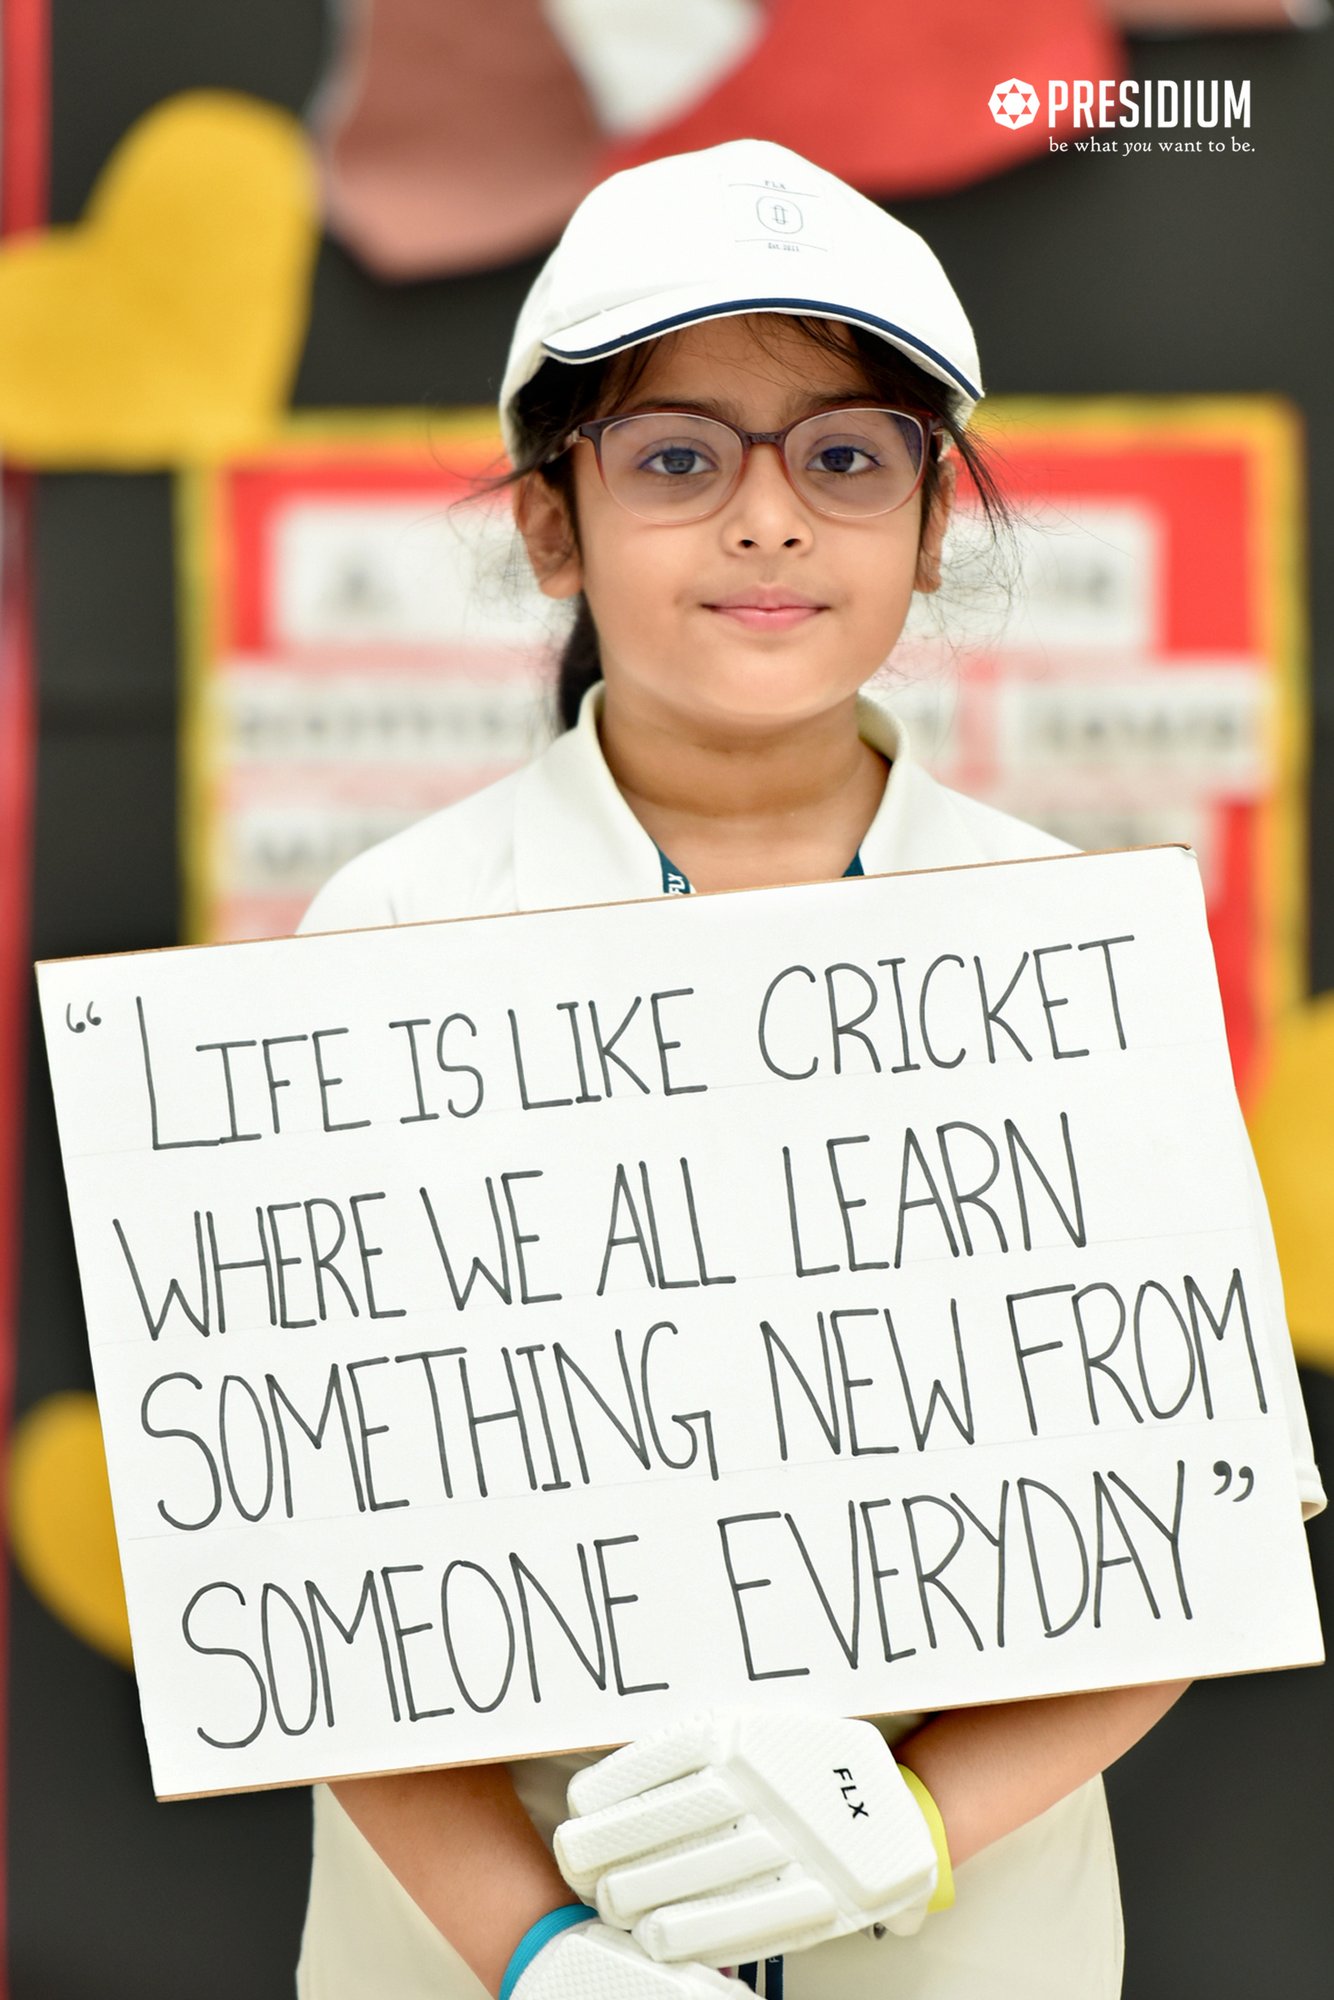 PRESIDIUM
be what you want to be.
FLX
Est. 2011
FLX
“LIFE IS LIKE CRICKET
WHERE WE ALL LEARN
SOMETHING NEW FROM
SOMEONE EVERYDAY”
FLX